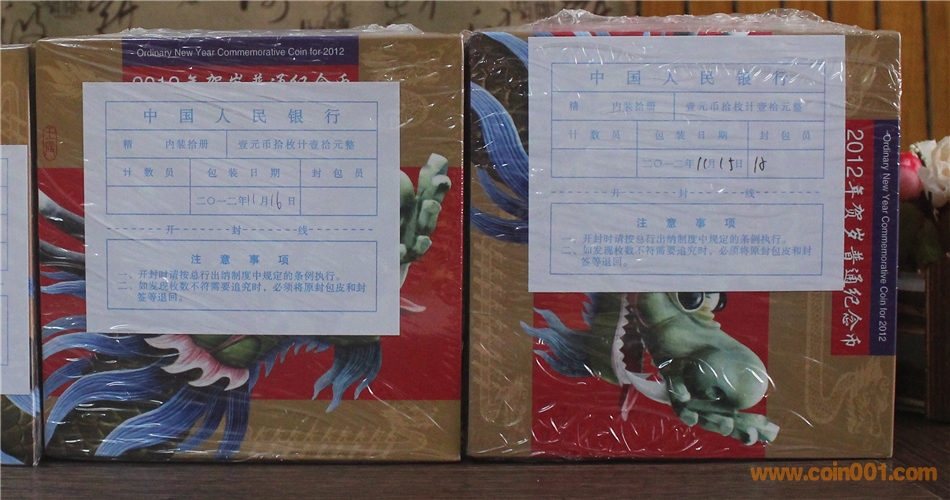 Ordinary New Year Commemorative Coin for 2012
2012年贺岁普通纪念币
中国人民银行
精 内装拾册 壹元币拾枚计壹拾元整
计数员 包装日期 封包员
二〇一二年11月16日
开 封 线
注意事项
一、开封时请按总行出纳制度中规定的条例执行。
二、如发现枚数不符需要追究时，必须将原封包皮和封
签等退回。
中国人民银行
精 内装拾册 壹元币拾枚计壹拾元整
计数员 包装日期 封包员
二〇一二年11月15日 18
开 封 线
注意事项
一、开封时请按总行出纳制度中规定的条例执行。
二、如发现枚数不符需要追究时，必须将原封包皮和封
签等退回。
Ordinary New Year Commemorative Coin for 2012
2012年贺岁普通纪念币
www.coin001.com